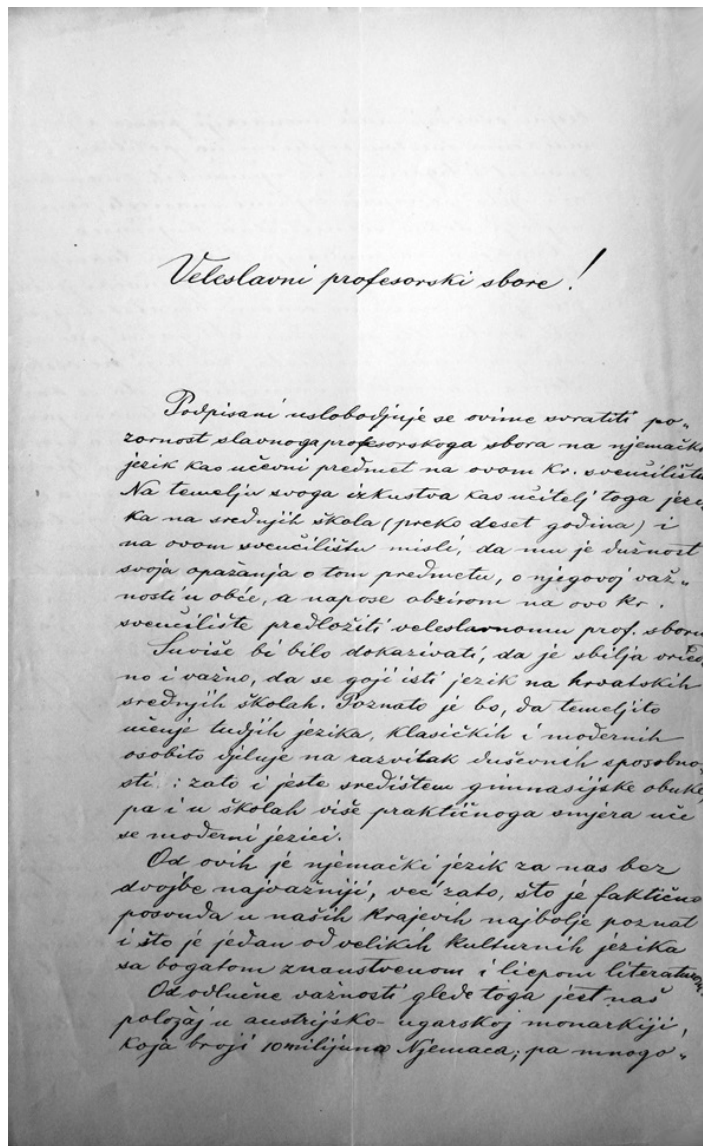 Veleslavni profesorski sbore!
Podpisani uslobodjuje se ovime svratiti po„
zornost slavnoga profesorskoga sbora na njemački
jezik kao učevni predmet na ovom kr. sveučilištu.
Na temelju svoga izkustva kao učitelj toga jezi„
ka na srednjih škola (preko deset godina) i
na ovom sveučilištu misli, da mu je dužnost
svoja opažanja o tom predmetu, o njegovoj važ„
nosti u obće, a napose obzirom na ovo kr.
sveučilište predložiti veleslavnomu prof. sboru.
Suviše bi bilo dokazivati, da je sbilja vried
no i važno, da se goji isti jezik na hrvatskih
srednjih školah. Poznato je bo, da temeljito
učenje tudjih jezika, klasičkih i modernih
osobito djeluje na razvitak duševnih sposobno„
sti: zato i jeste središtem gimnasijske obuke,
pa i u školah više praktičnoga smjera uče
se moderni jezici.
Od ovih je njemački jezik za nas bez
dvojbe najvažniji, već zato, što je faktično
posvuda u naših krajevih najbolje poznat
i što je jedan od velikih kulturnih jezika
sa bogatom znanstvenom i liepom literaturom.
Od odlučne važnosti glede toga jest naš
položaj u austrijsko-ugarskoj monarkiji,
koja broji 10 milijuna Njemaca; pa mnogo„